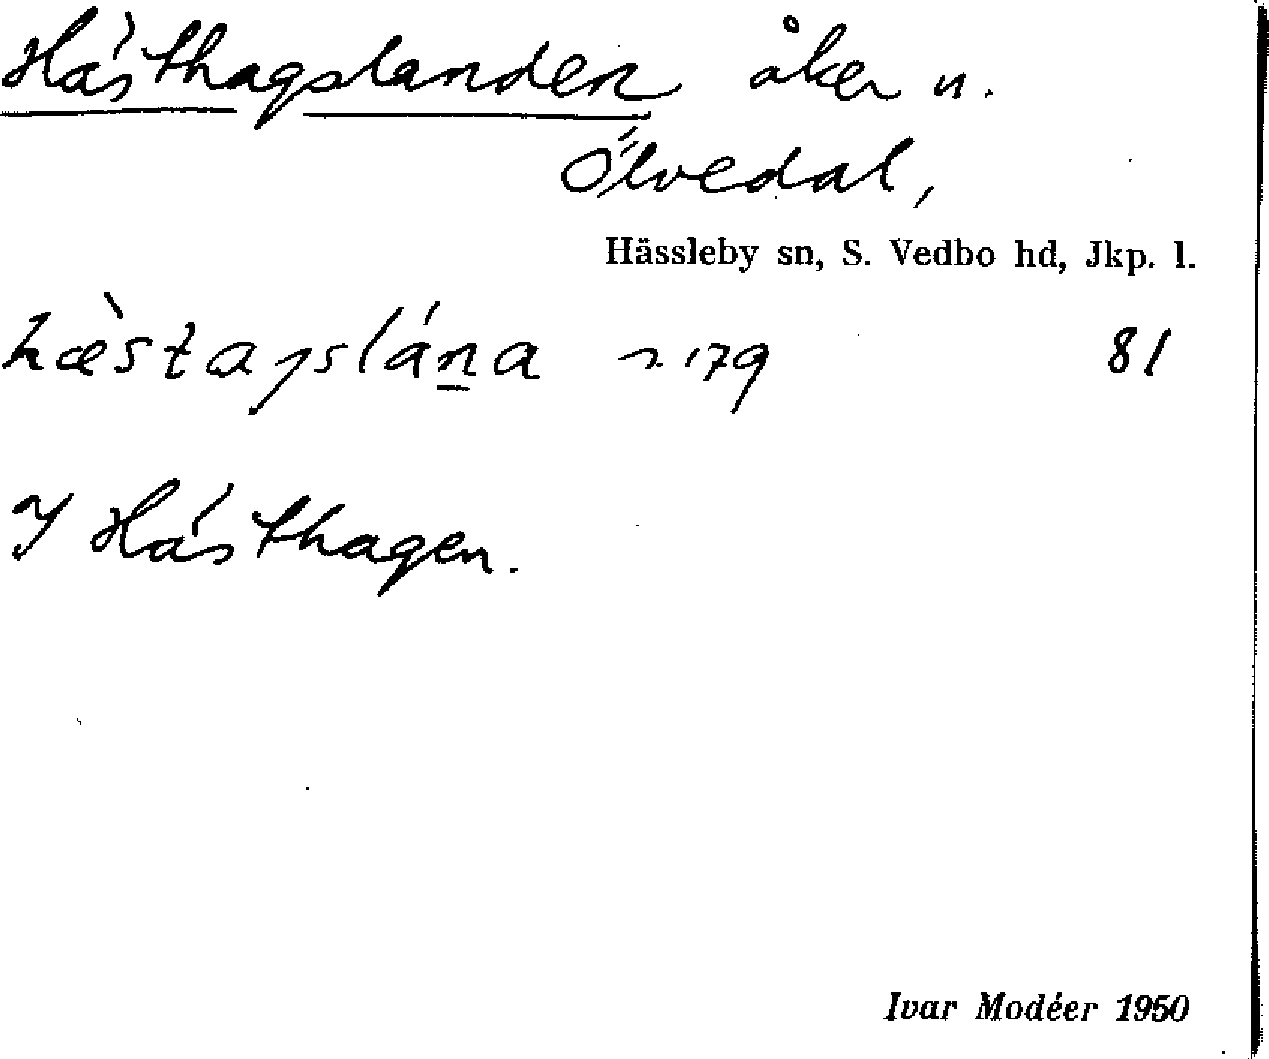 Hästhagslanden åker n.
Ölvedal,
Hässleby sn, S. Vedbo hd, Jkp. l.
81
I Hästhagen.
Ivar Modéer 1950